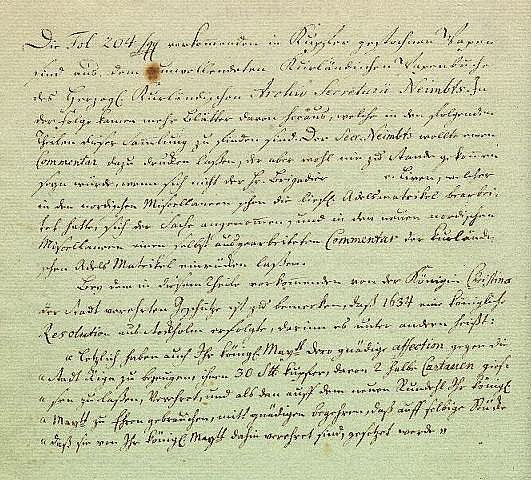 Die Fol 204 sqq vorkomenden in Kupfer gestochnen Wapen
sind aus dem unvollendeten Kurländischen Wapenbuche
des Herzogl. Kurländischen Archiv Secretairs Neimbts. In
der Folge kamen mehr Blätter davon heraus, welche in den folgenden
Theilen dieser Samlung zu finden sind. Der Secr. Neimbts wollte einen
Commentar dazu drucken laßen, der aber wohl nie zu Stande gekomen
seyn würde, wenn sich nicht der Hr. Brigadier v. Lieven, welcher
in den nordischen Miscellaneen schon die liefl. Adelsmatrikel bearbei-
tet hatte, sich der Sache angenommen, und in den neuen nordischen
Miscellaneen einen selbst ausgearbeiteten Commentar der kurländi-
schen Adels Matrikel einrücken laßen.
Bey dem in diesem Theile vorkomenden von der Königin Christina
der Stadt verehrten Geschütze ist zu bemerken, daß 1634 eine königliche
Resolution aus Stokholm erfolgte, darinn es unter andern heißt:
" Letzlich haben auch Ihr königl. Maytt dero gnädige affection gegen die
" Stadt Riga zu bezeugen, ihnen 30 Stk kupfer, davon 2 halbe Cartauen gies-
" sen zu laßen, Verehret, und als den auff dem neuen Rundeel Ihr königl.
" Maytt zu Ehren gebrauchen, mit gnädigen begehren, daß auff selbige Stücke
" daß sie von Ihr königl. Maytt dahin verehret sind, gesetzet werde "